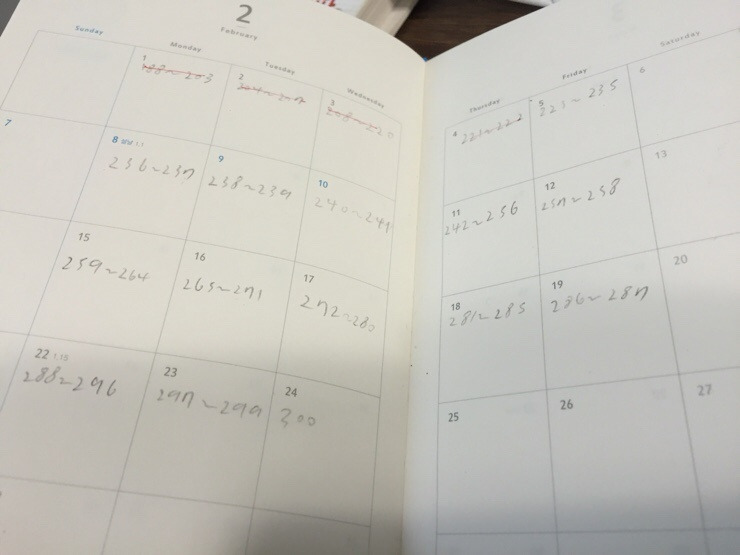 2
February
Sunday Monday Tuesday Wednesday Thursday Friday Saturday
1 2 3 4 5 6
188~203 204~207 208~220 221~222 223~235
7 8 설날 1.1 9 10 11 12 13
236~237 238~239 240~241 242~256 257~258
15 16 17 18 19 20
259~264 265~271 272~280 281~285 286~287
22 1.15 23 24 25 26 27
288~296 297~299 300